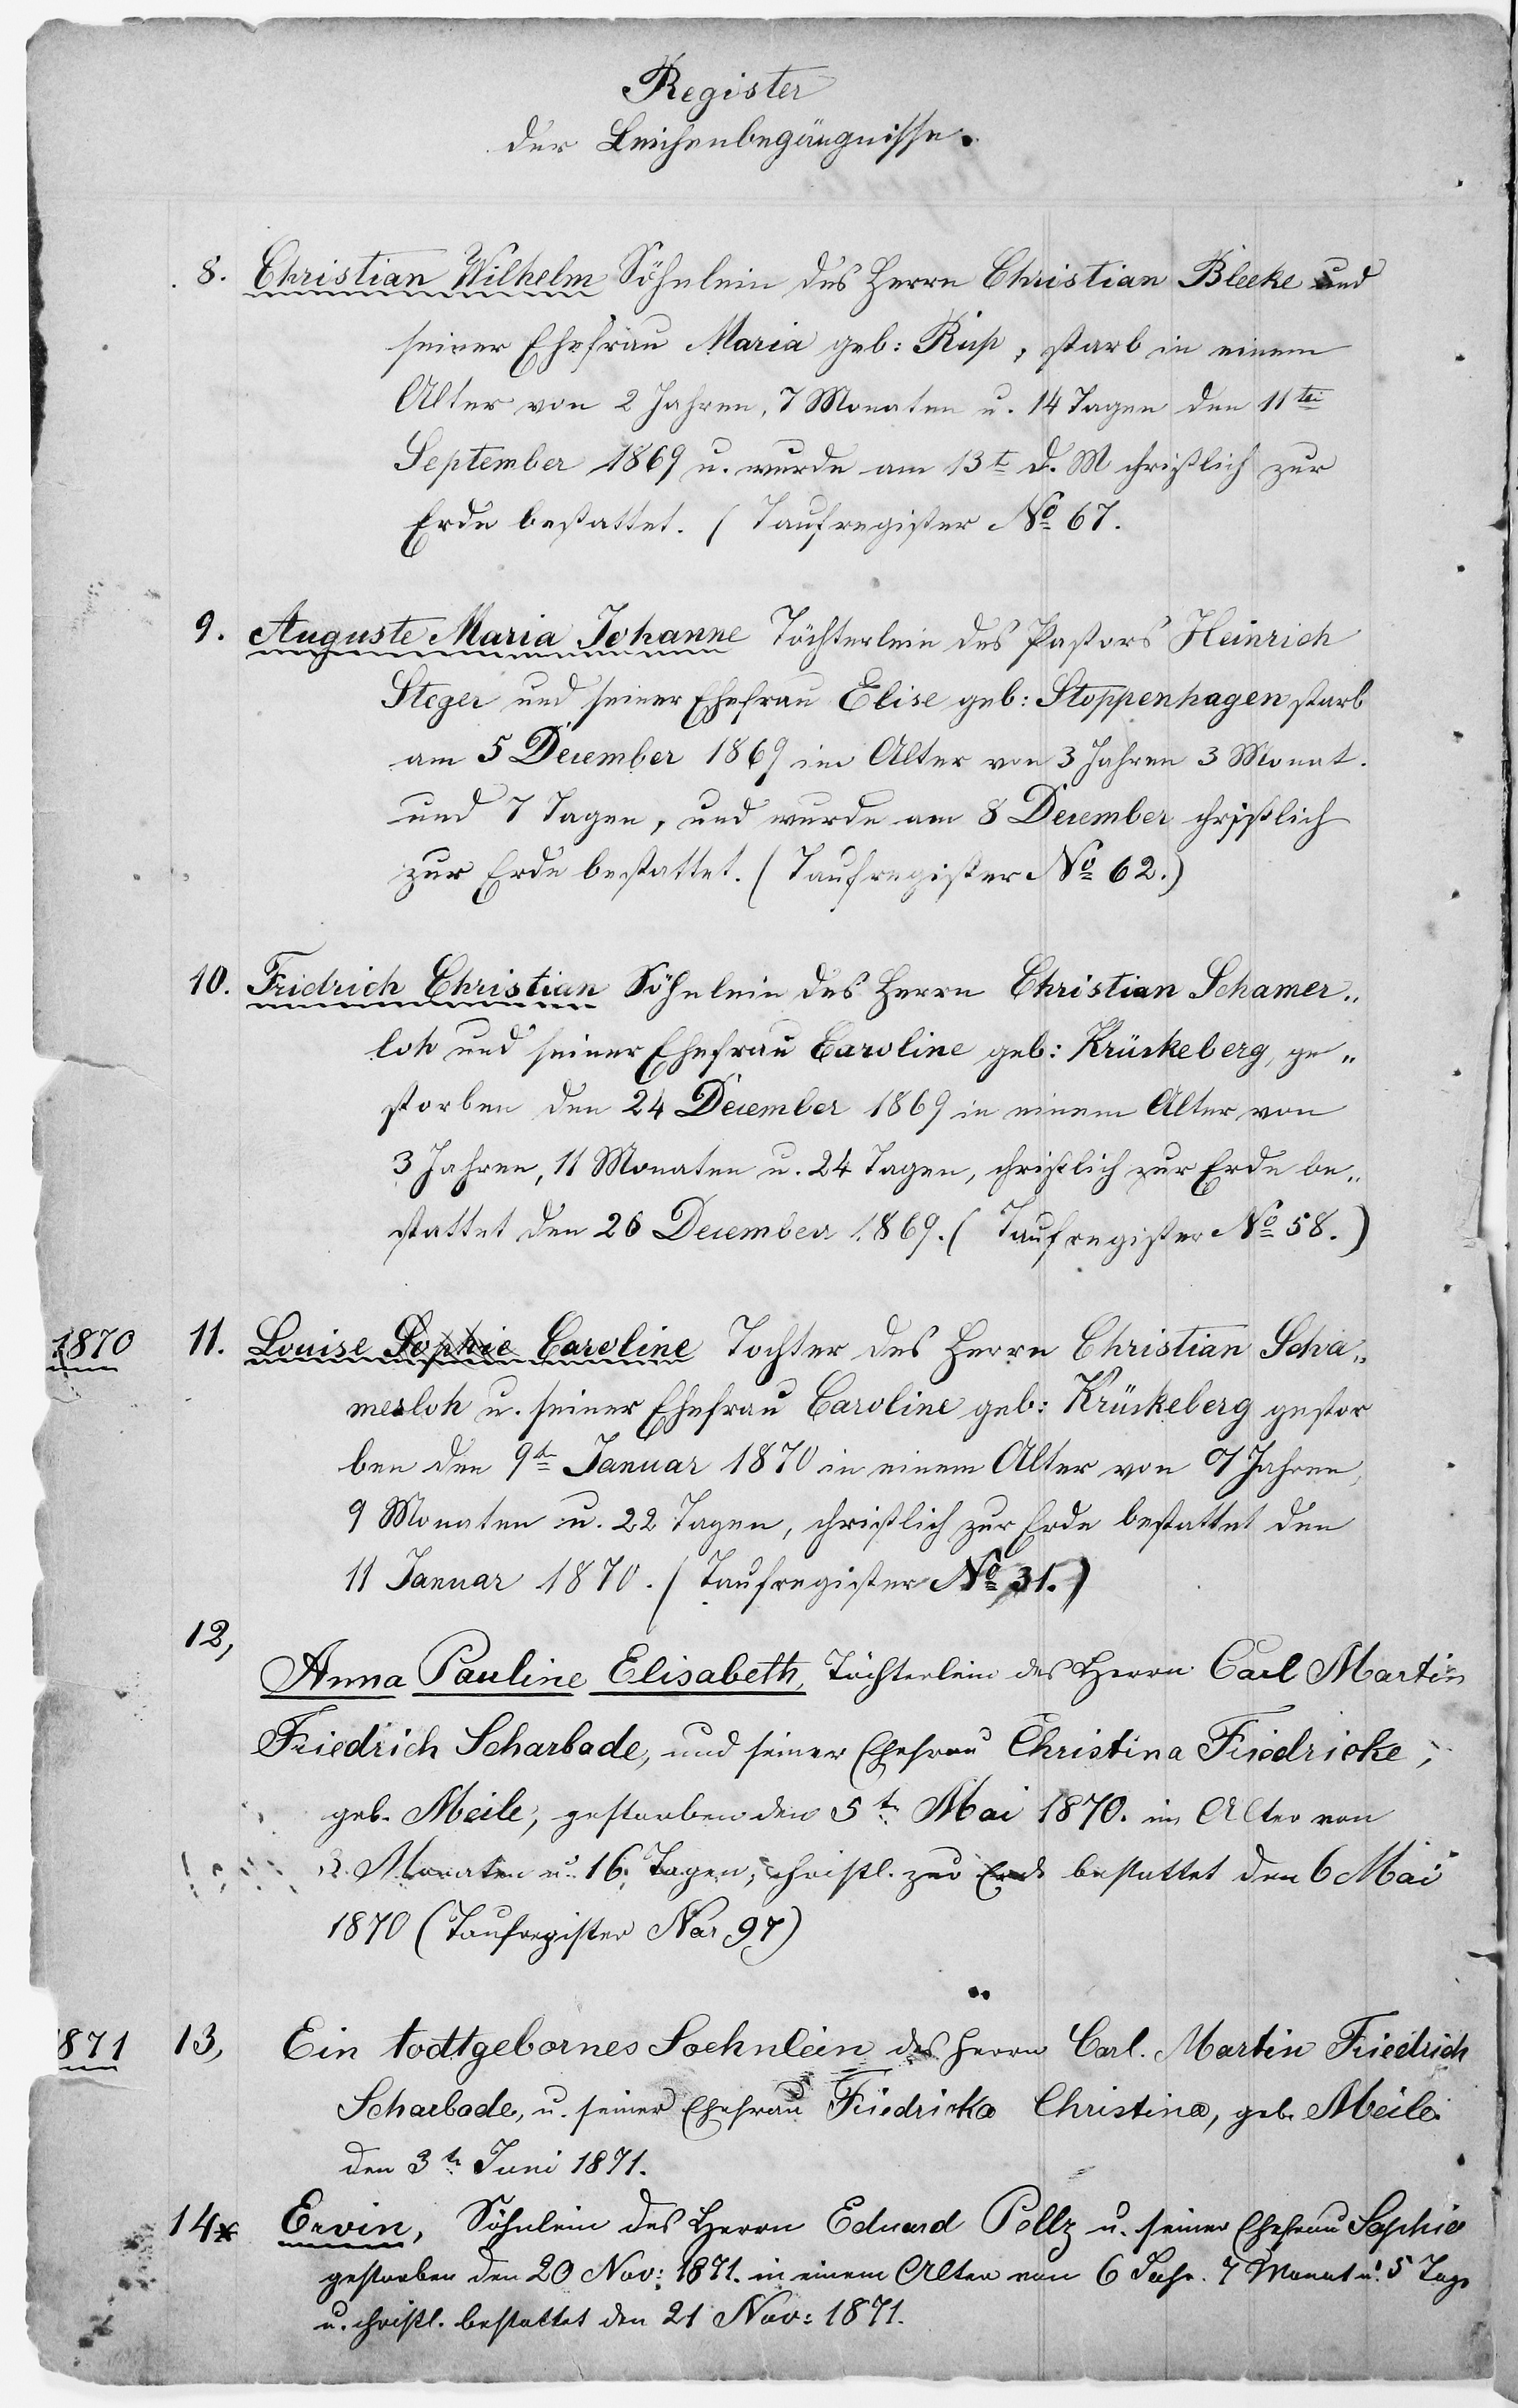 Register
der Leichenbegängnisse.
8. Christian Wilhelm Söhnlein des Herrn Christian Bleeke und
seiner Ehefrau Maria geb: Rup, starb in einem
Alter von 2 Jahren, 7 Monaten u. 14 Tagen den 11te
September 1869 u. wurde am 13t d. M christlich zur
Erde bestattet. ( Taufregister No 67.
9. Auguste Maria Johanne Töchterlein des Pastors Heinrich
Steger und seiner Ehefrau Elise geb: Stoppenhagen starb
am 5 December 1869 im Alter von 3 Jahren 3 Monat.
und 7 Tagen, und wurde am 8 December christlich
zur Erde bestattet. ( Taufregister No 62.)
10. Fridrich Christian Söhnlein des Herrn Christian Schamer„
loh und seiner Ehefrau Caroline geb: Krückeberg, ge„
storben den 24 December 1869 in einem Alter von
3 Jahren, 11 Monaten u. 24 Tagen, christlich zur Erde be„
stattet den 26 December 1869. ( Taufregister No 58.)
1870 11. Louise Sophie Caroline Tochter des Herrn Christian Scha„
merloh u. seiner Ehefrau Caroline geb: Krückeberg gestor
ben den 9t Januar 1870 in einem Alter von 7 Jahren,
9 Monaten u. 22 Tagen, christlich zur Erde bestattet den
11 Januar 1870. ( Taufregister No 31.)
12, Anna Pauline Elisabeth, Töchterlein des Herrn Carl Martin
Friedrich Scharbade, und seiner Ehefrau Christina Friedricke,
geb. Meile, gestorben den 5t Mai 1870. im Alter von
Monaten u. 16. Tagen, christl. zur Erde bestattet den 6 Mai
1870 (Taufregister Nor 97)
1871 13, Ein todtgebornes Soehnlein des Herrn Carl. Martin Friedrich
Scharbade, u. seiner Ehefrau Fiedricka Christina, geb. Meile.
den 3t Juni 1871.
14 Ervin, Söhnlein des Herrn Eduard Pellz u. seiner Ehefrau Sophie
gestorben den 20 Nov: 1871. in einem Alter von 6 Jahr. 7 Monat u. 5 Tage
u. christl. bestattet den 21 Nov: 1871.